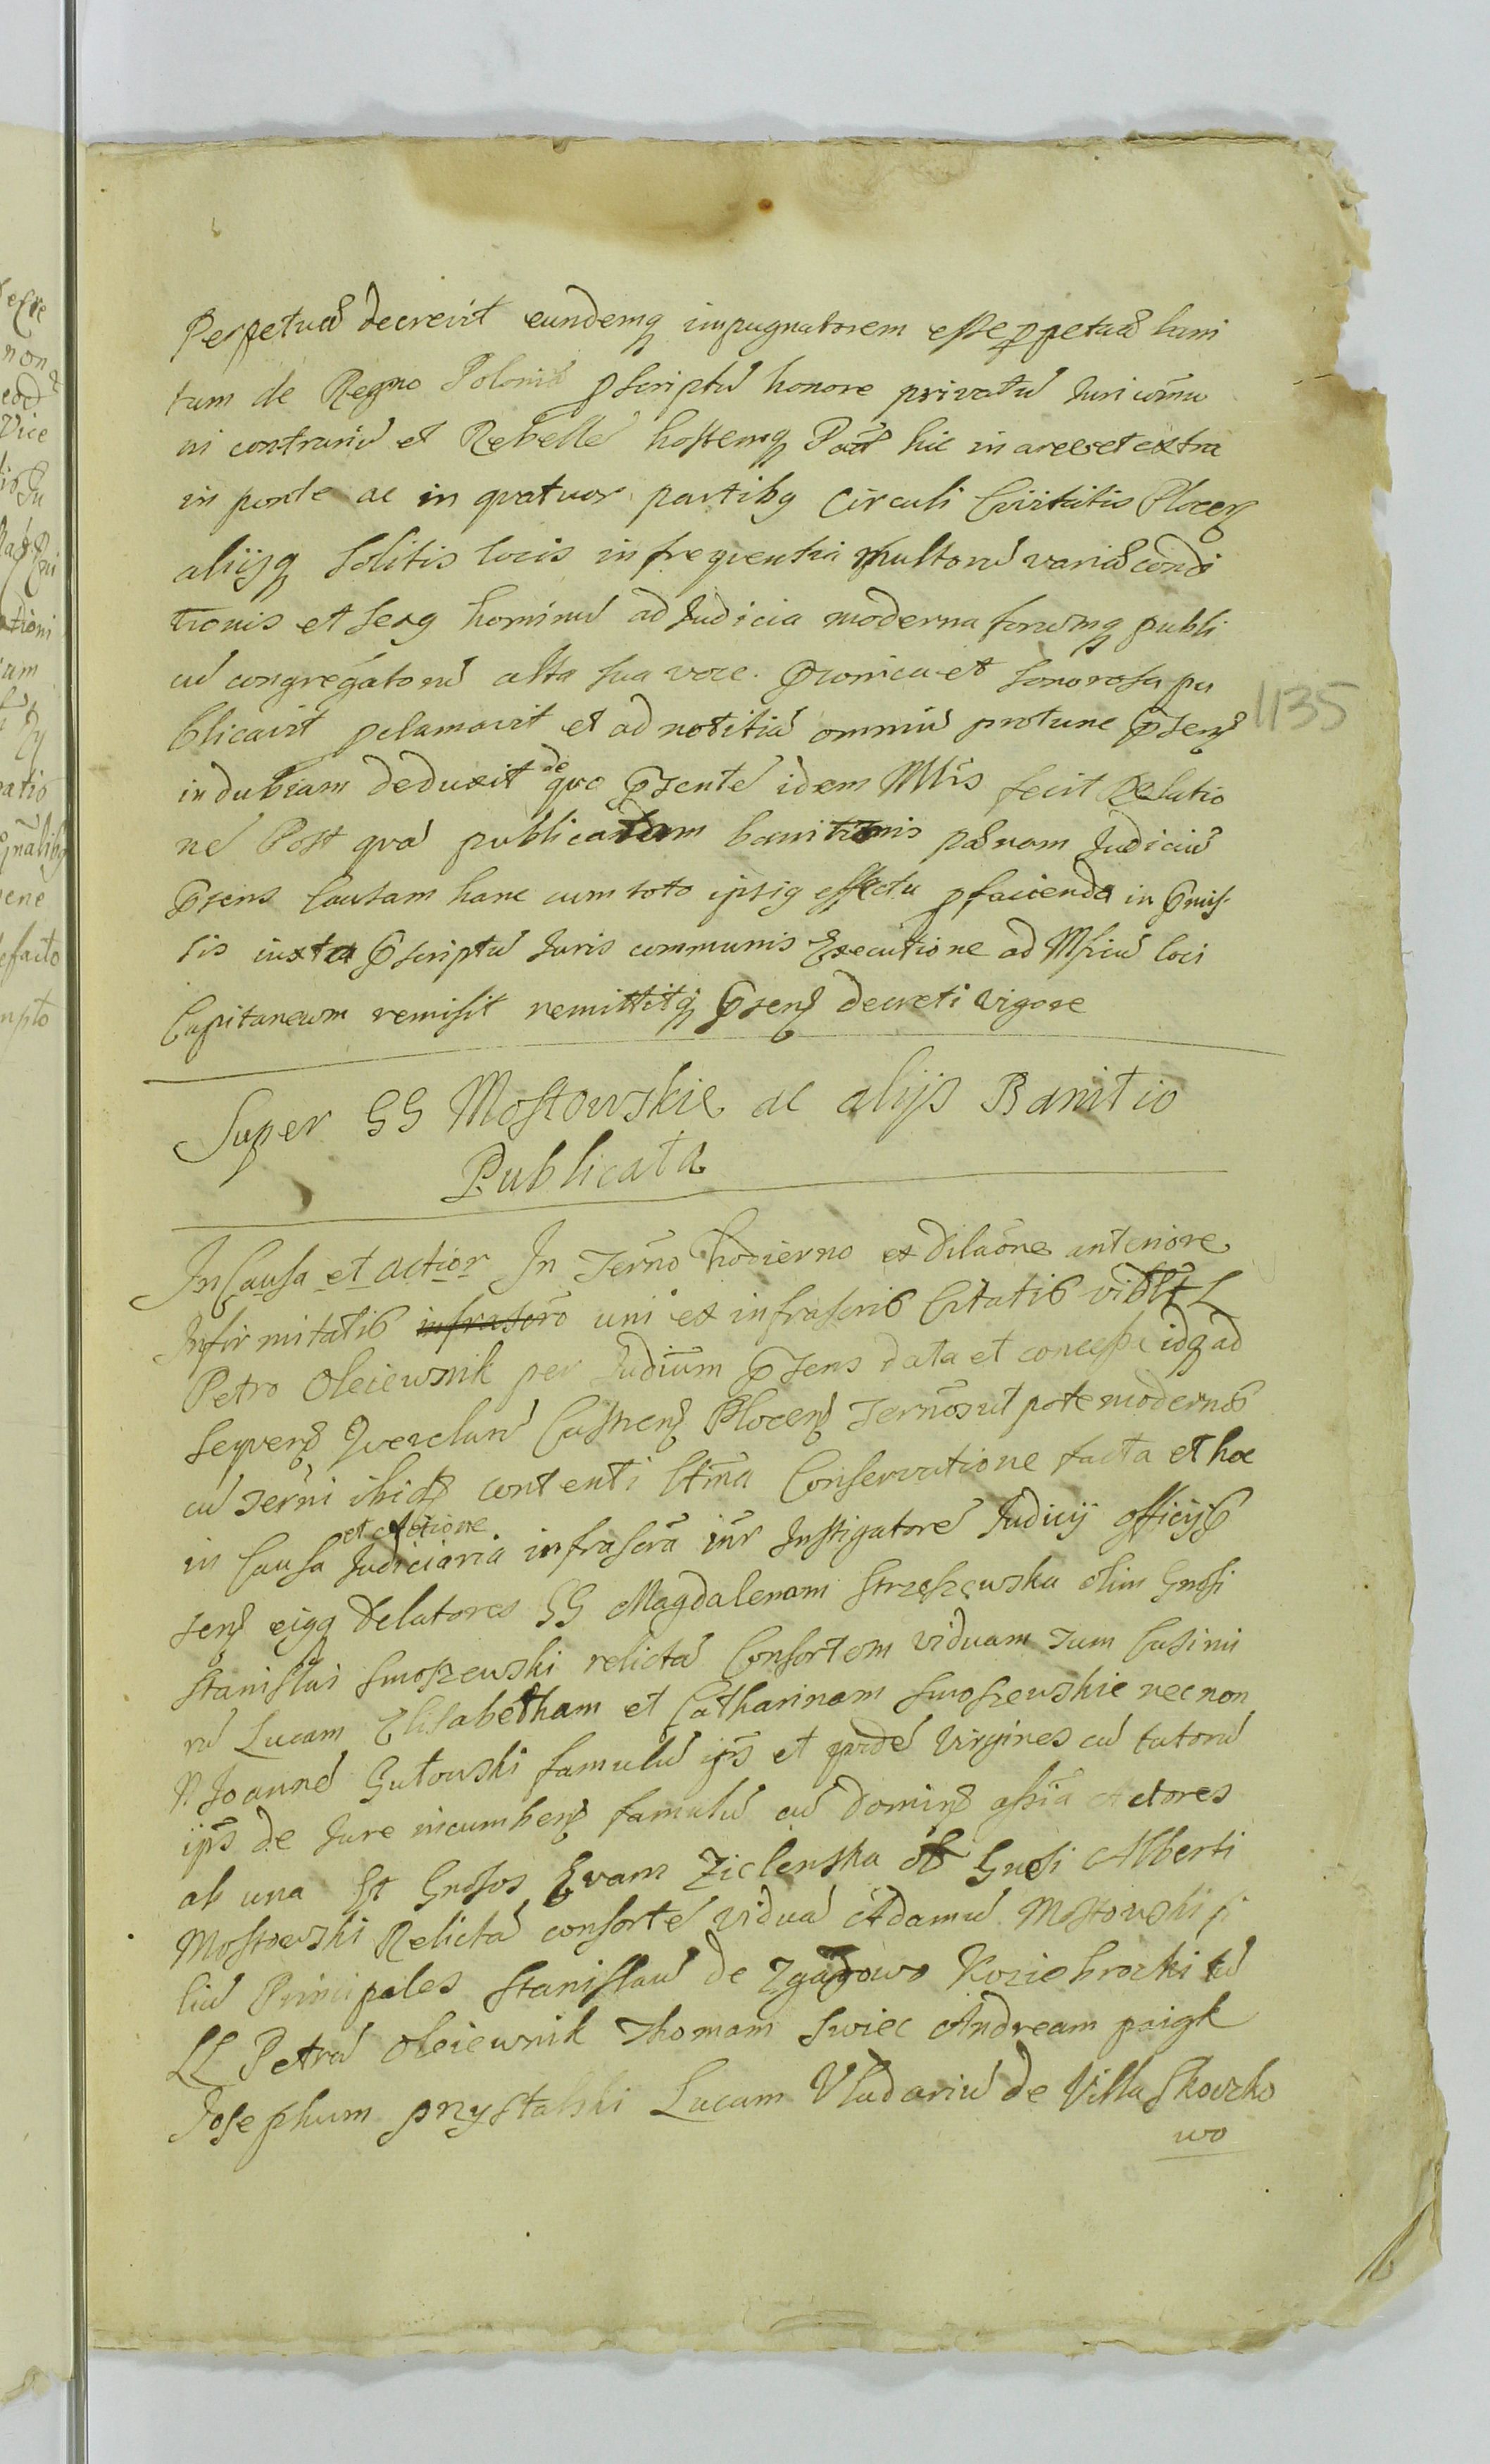 Perpetuā decrevit eundemq impugnatorem esse ꝑpetuā bani
tum de Regno Poloniæ ꝓscriptū honore privatū Juri com̄u
ni contrariū et Rebellē hostemq Patriæ hic in arce et extra
in ponte ac in quatuor partibq Circuli Civitatis Plocenſ
aliijsq solitis locis in frequentia multorū variæ condi
tionis et sexq hominū ad Judicia moderna forumq publi
cū congregatorū alta sua voce pronica et sonorosa pu
blicavit ꝓclamavit et ad notitiā omniū protunc pꝛsenſ
indubiam deduxit de quo pꝛsentē idem Mtris fecit Relatio
nē Post quā publicatam banitionis pænam Judiciū
pꝛsens Causam hanc cum toto ipsiq effectu ꝓ facienda in pꝛmiſ
sis iuxta pꝛscriptū Juris communis Executione ad Mficū loci
Capitaneum remisit remittitq pꝛsenſ decreti vigore
Super GG Mostowskie ac alijs Banitio
Publicata
In Causa et actior In Termo hodierno ex dilaōne anteriore
Infirmitatis infrascro uni ex infrascris Citatis vidlt L
Petro Oleiewnik per Judium pꝛsens data et concessa idq ad
sequenſ Querelarū Castrenſ Plocenſ Termos ut pote modernos
cū Termi ibidē contenti Conservatione facta et hoc
in Causa et actione Judiciaria infrascra inr Instigatorē Judicij officij
senſ eiqq Delatores GG Magdalenam Strzeszewska olim Gnosi
Stanislai Smoszewski relictā Consortem viduam Tum Casimi
rū Lucam Elisabetham et Catharinam Smoszewskie necnon
N Joannē Gutowski famulū ipſs et quidē Virgines cū tutorū
ipſs de Jure incumbenſ famulū cū Dominſ assia Actores
ab una Et Gnosos Evam Zielenska ol Gnosi Alberti
Mostowski Relictā consortē viduā Adamū Mostowski fi
liū Principales Stanislaū de Zgagowo Koziebrocki tū
LL Petrū Oleiewnik Thomam Swiec Andream paigk
Josephum przystalski Lucam Vladariū de Villa Skoczko
wo
1135